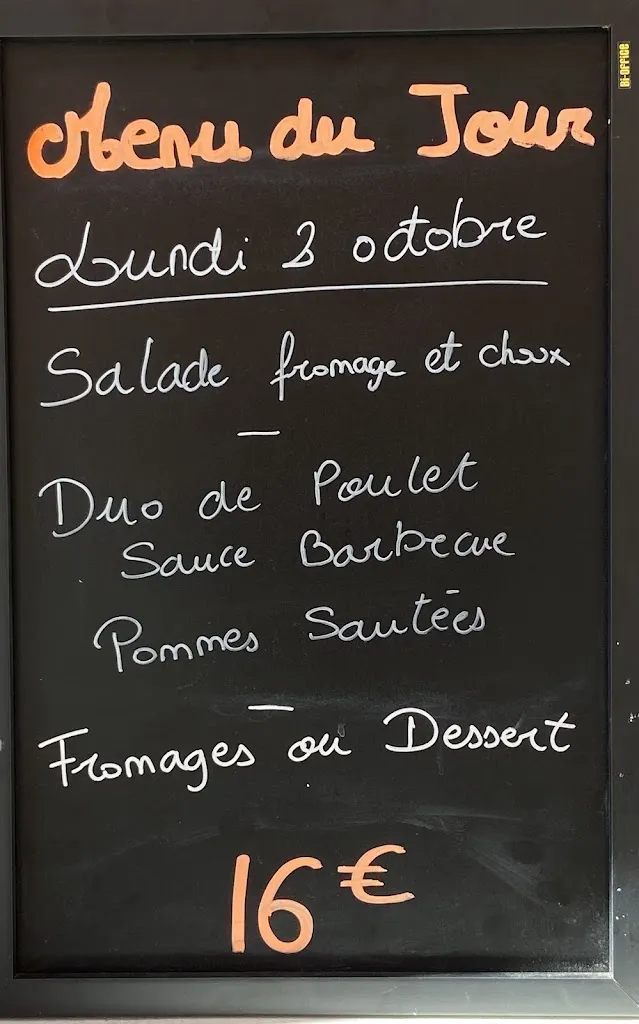 Menu du Jour
Lundi 2 octobre
Salade fromage et choux
—
Duo de Poulet
Sauce Barbecue
Pommes Sautées
—
Fromages ou Dessert
16€
Bi-Office